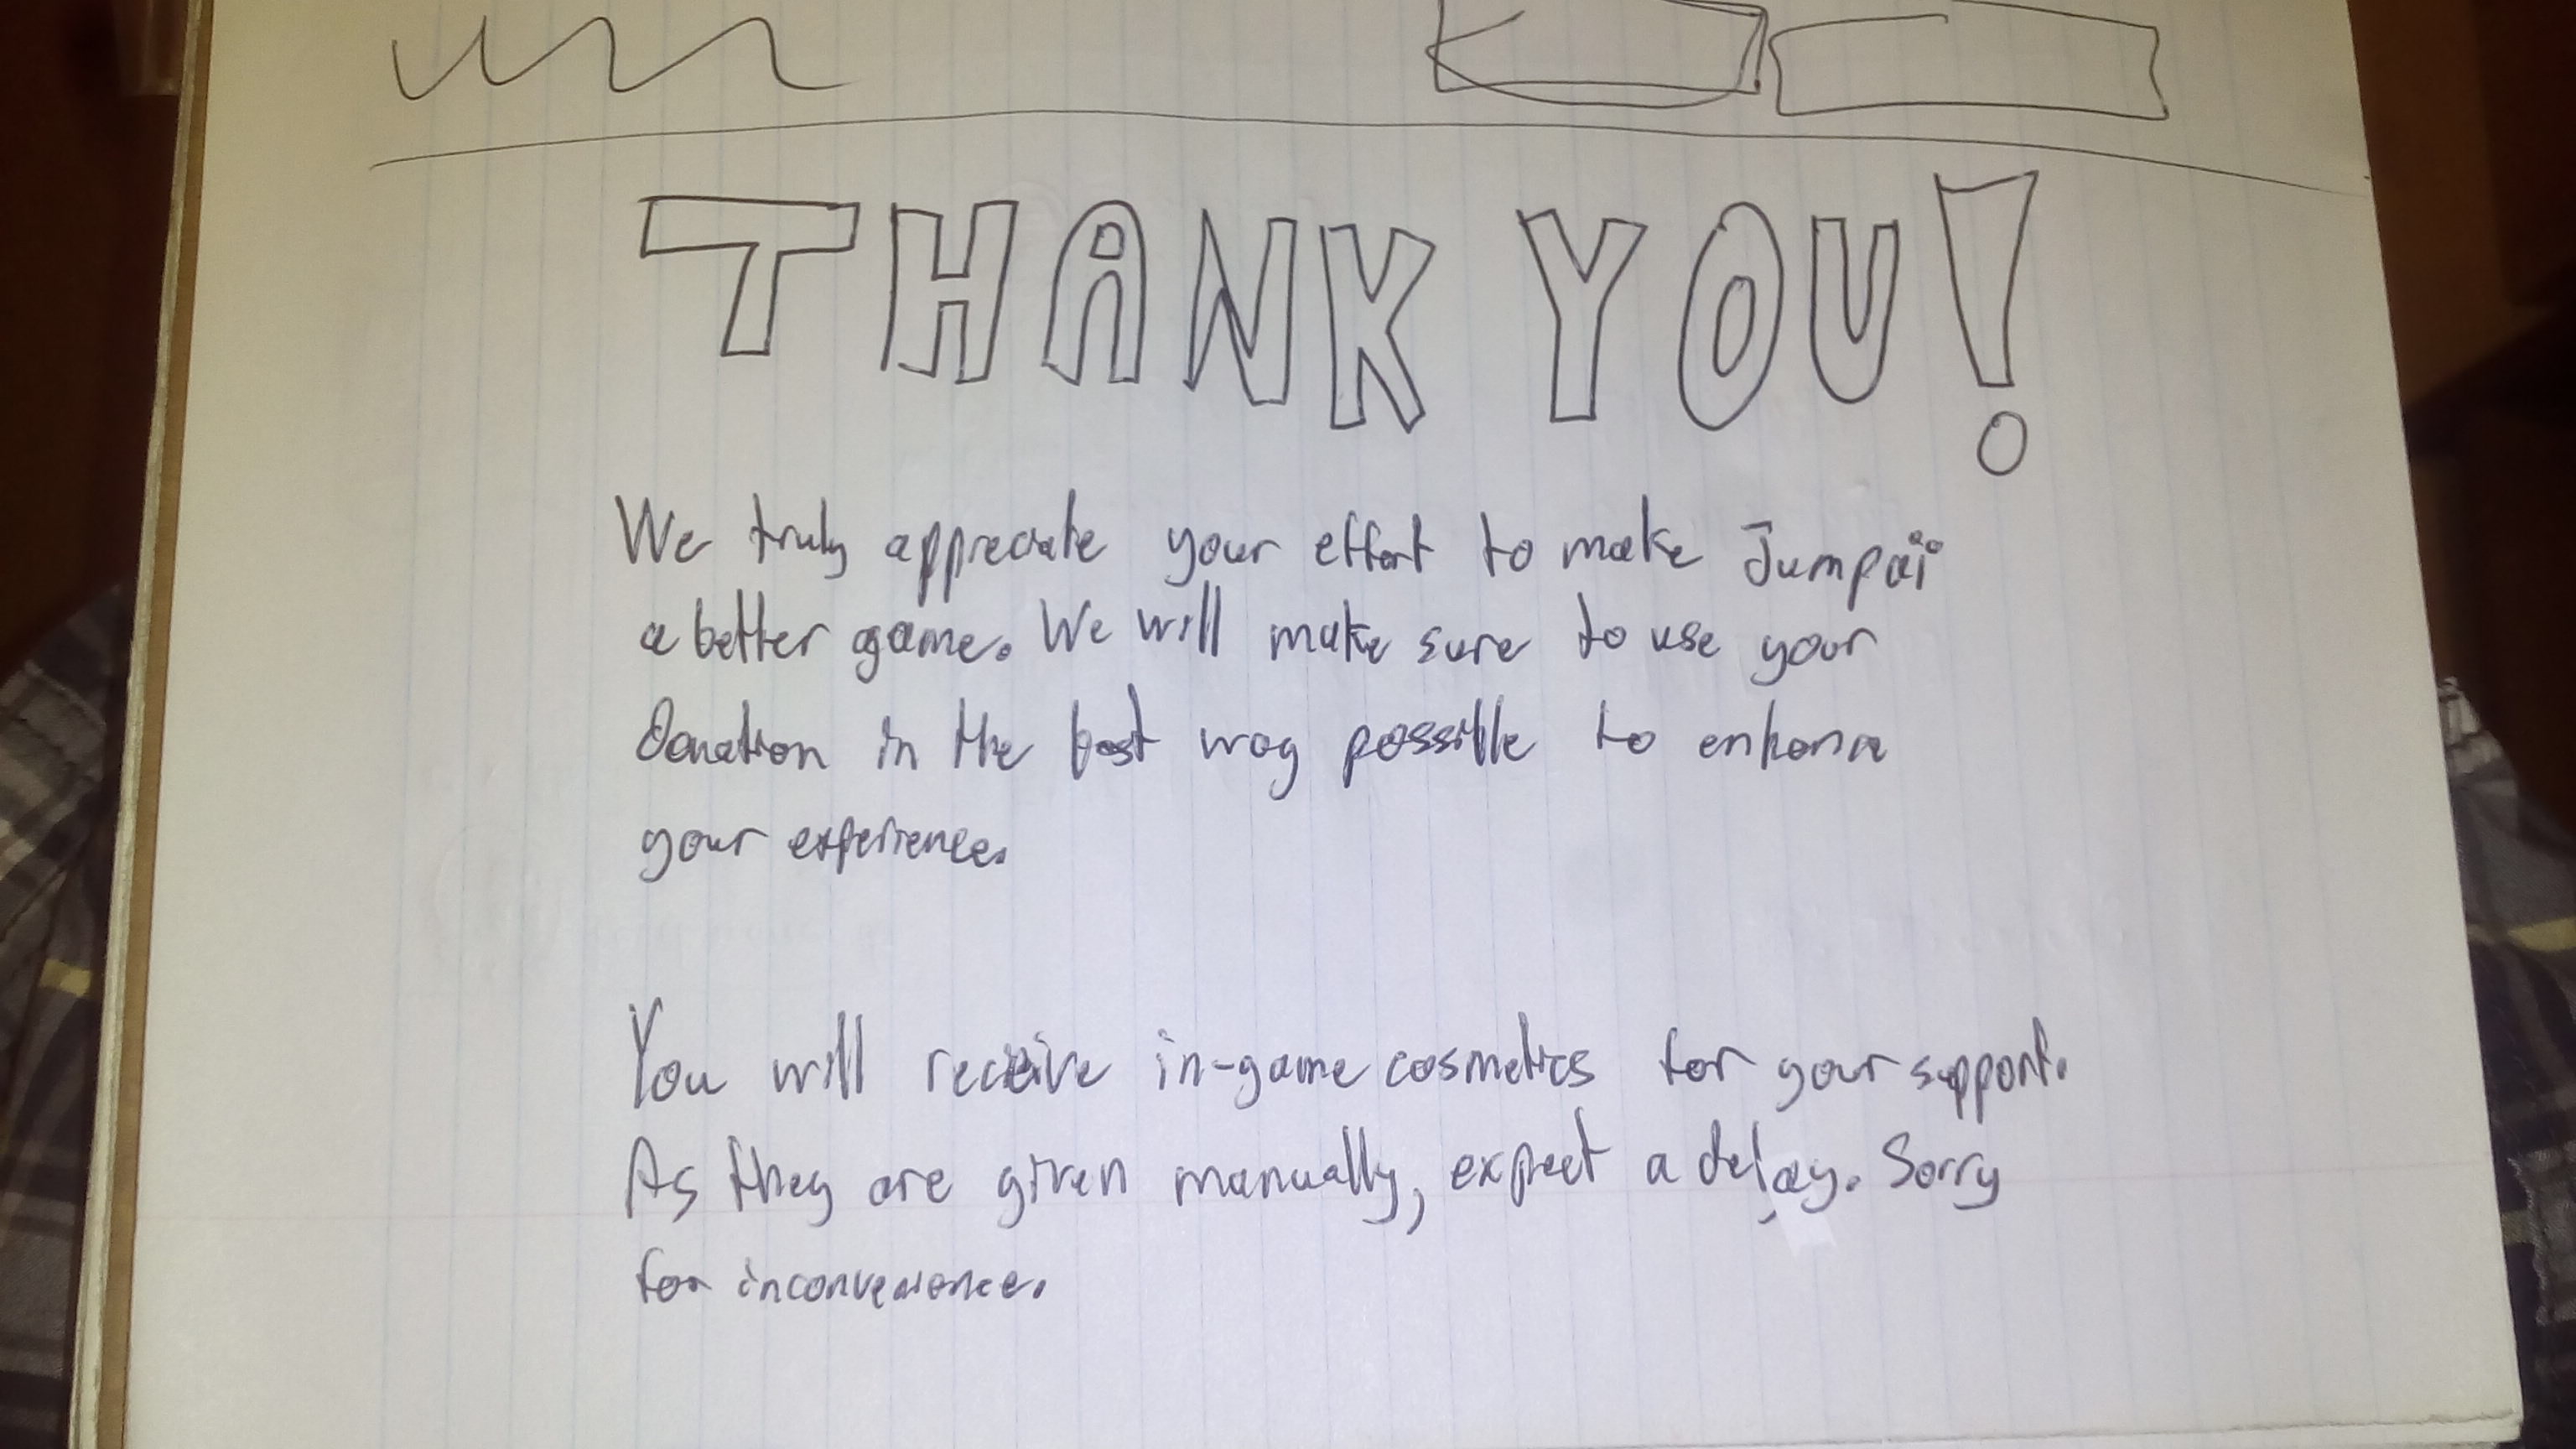 THANK YOU!
We truly appreciate your effort to make Jumpaï
a better game. We will make sure to use your
Donation in the best way possible to enhance
your experience.
You will receive in-game cosmetics for your support.
As they are given manually, expect a delay. Sorry
for inconvenience.